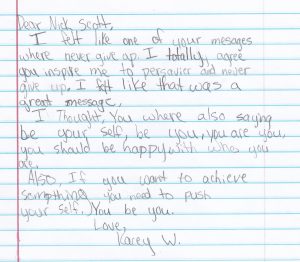 Dear Nick Scott,
I felt like one of your mesages
where never give up. I totally, agree
you inspire me to persavier and never
give up. I felt like that was a
great message,
I Thought, You where also saying
be your self, be you, you are you,
you should be happy with who you
are.
Also, If you want to achieve
something you need to push
your self. You be you.
Love,
Karey W.